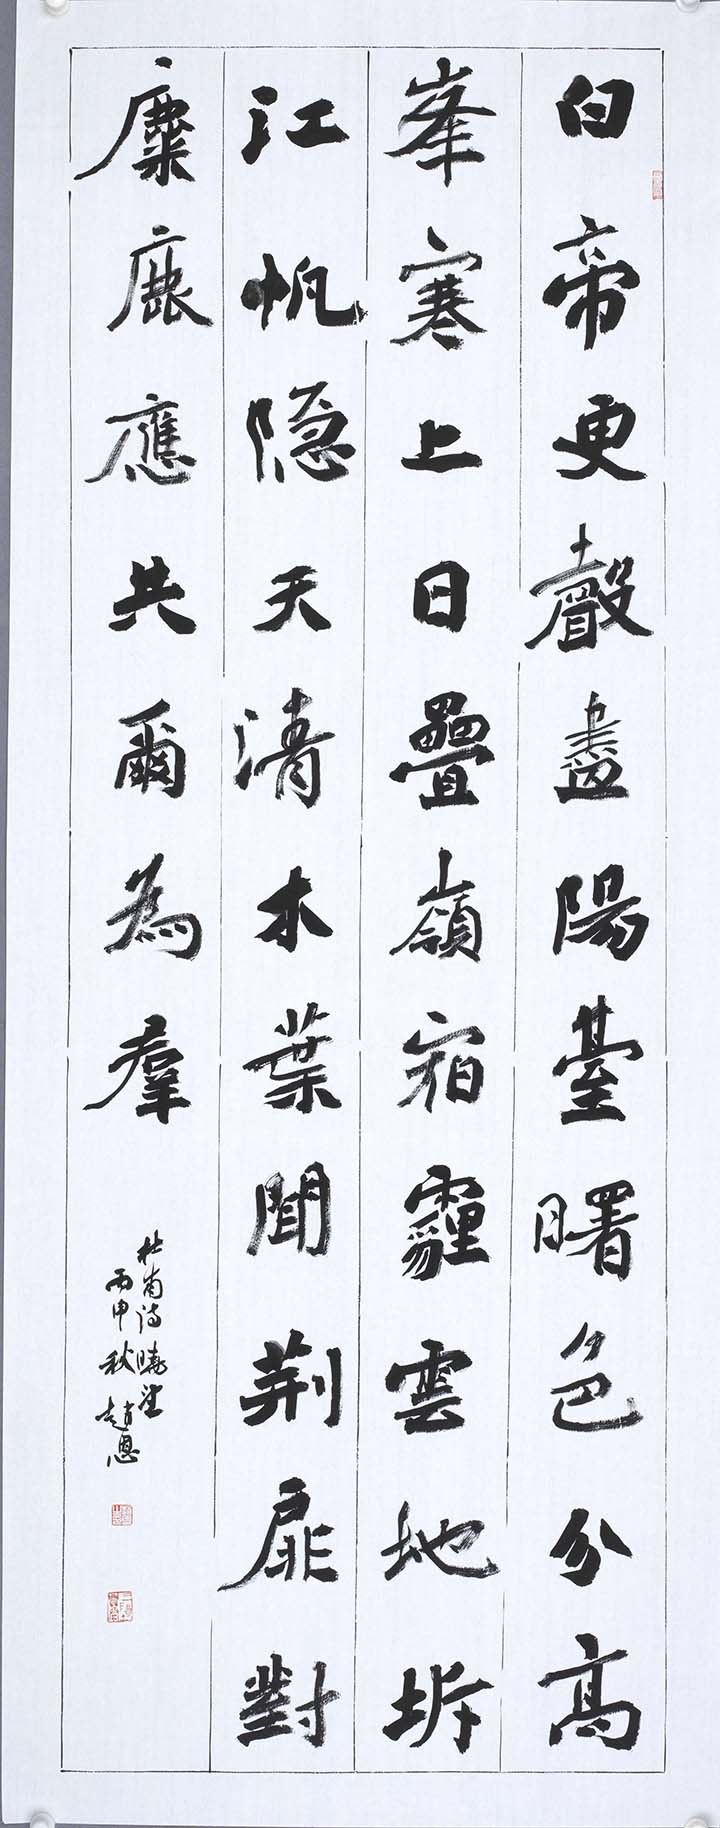 白帝更聲盡陽臺曙色分高
峯寒上日疊嶺宿霾雲地坼
江帆隐天清木葉聞荊扉對
麋鹿應共爾為羣
杜甫詩曉望
丙申秋 趙恩